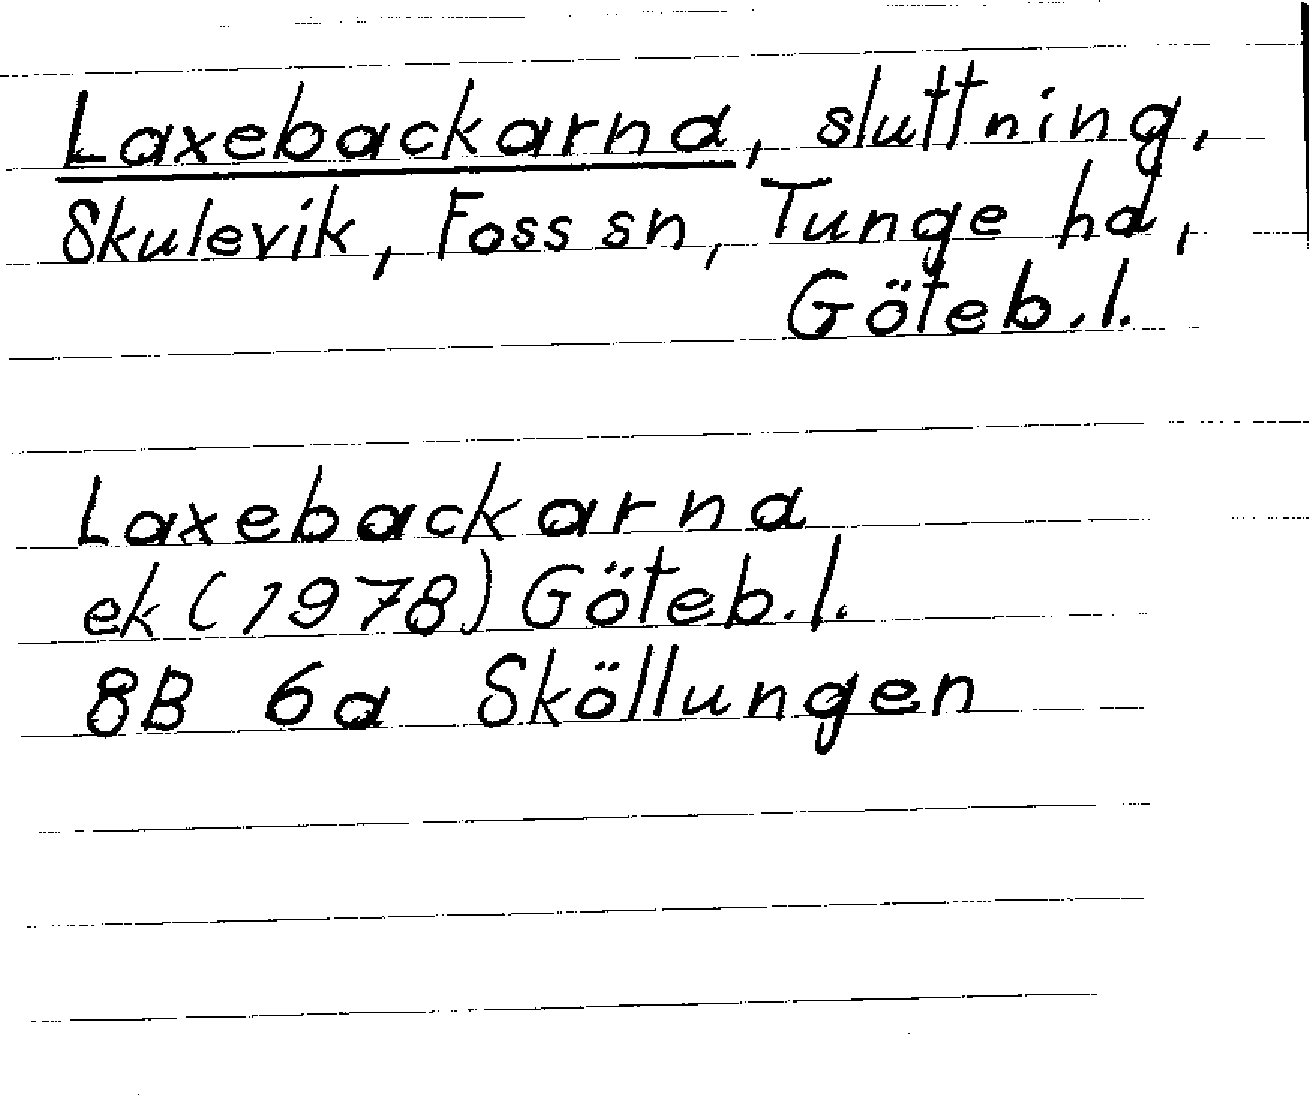 Laxebackarna, sluttning,
Skulevik, Foss sn, Tunge hd,
Göteb.l.
Laxebackarna
ek (1978) Göteb.l.
8B 6a Sköllungen